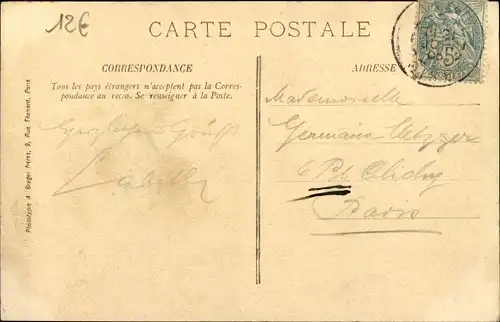 12€
CARTE POSTALE
CORRESPONDANCE
Tous les pays étrangers n'acceptent pas la Corres-
pondance au recto. Se renseigner à la Poste.
ADRESSE
Mademoiselle
Germaine Metzger
6 Pl. Clichy
Paris
Phototypie A. Breger Frères, 9, Rue Thénard, Paris
5